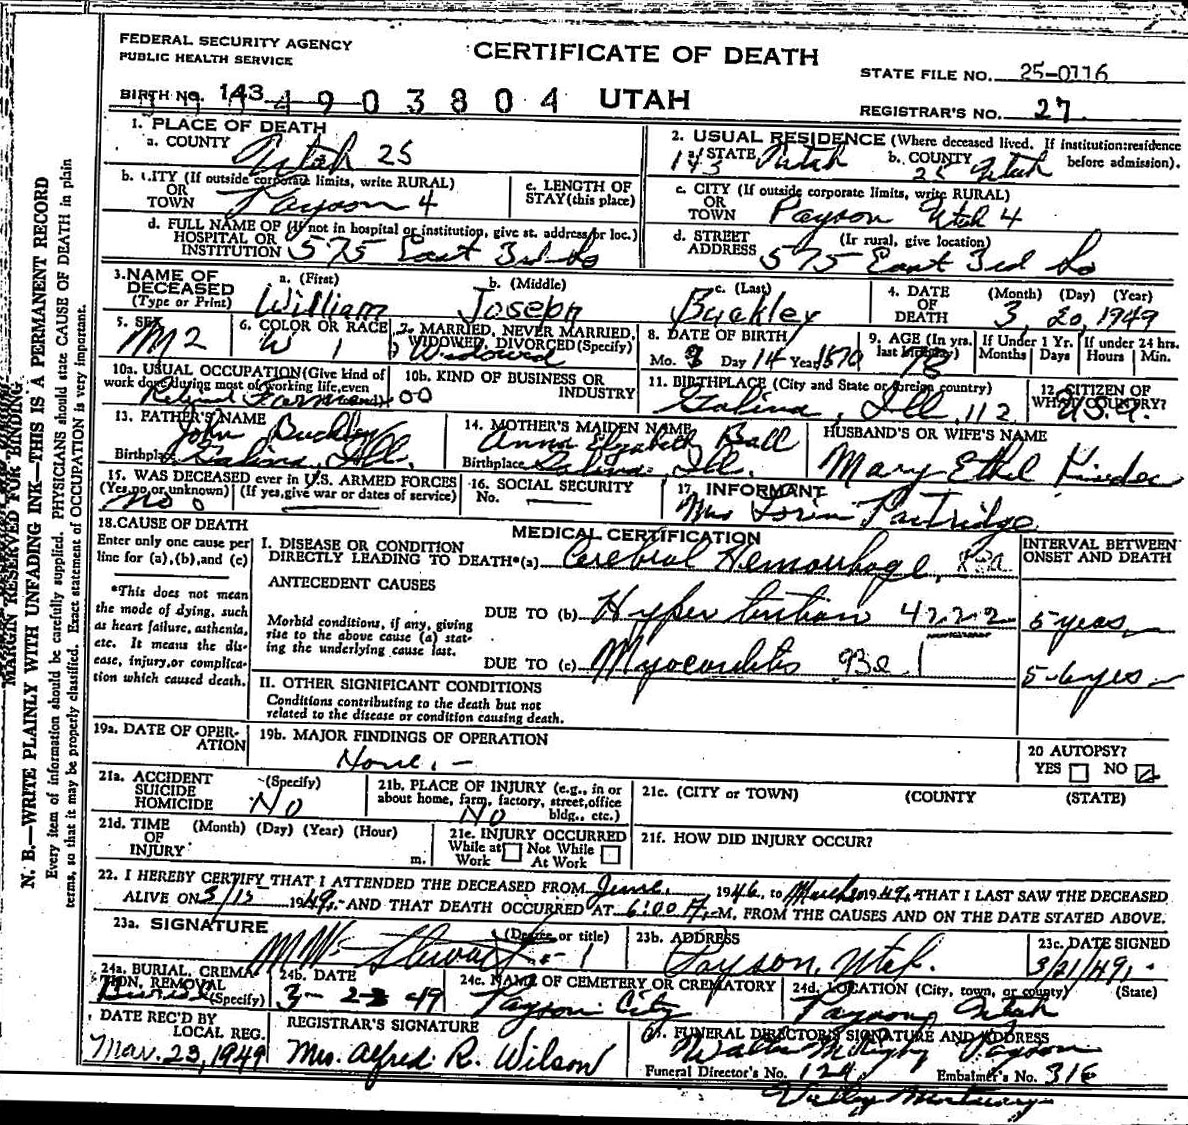 FEDERAL SECURITY AGENCY
PUBLIC HEALTH SERVICE
CERTIFICATE OF DEATH
STATE FILE NO. 25-0116
BIRTH NO. 143 4903804 UTAH
REGISTRAR'S NO. 27
1. PLACE OF DEATH
a. COUNTY Utah 25
2. USUAL RESIDENCE (Where deceased lived. If institution: residence before admission).
143 a. STATE Utah b. COUNTY 25 Utah
b. CITY (If outside corporate limits, write RURAL)
OR
TOWN Payson 4
c. LENGTH OF
STAY (this place)
c. CITY (If outside corporate limits, write RURAL)
OR
TOWN Payson Utah 4
d. FULL NAME OF (If not in hospital or institution, give st. address or loc.)
HOSPITAL OR
INSTITUTION 575 East 3rd So
d. STREET (If rural, give location)
ADDRESS 575 East 3rd So
3. NAME OF
DECEASED
(Type or Print)
a. (First) William
b. (Middle) Joseph
c. (Last) Buckley
4. DATE (Month) (Day) (Year)
OF
DEATH 3, 20, 1949
5. SEX M 2
6. COLOR OR RACE W 1
7. MARRIED, NEVER MARRIED,
WIDOWED, DIVORCED (Specify)
Widowed
8. DATE OF BIRTH
Mo. Day 14 Year 1870
9. AGE (In yrs. last birthday) 78
If Under 1 Yr. Months Days
If under 24 hrs. Hours Min.
10a. USUAL OCCUPATION (Give kind of
work done during most of working life, even
if retired)
Retired Farmer 00
10b. KIND OF BUSINESS OR
INDUSTRY
11. BIRTHPLACE (City and State or foreign country)
Galina, Ill, 112
12. CITIZEN OF
WHAT COUNTRY?
U.S.A.
13. FATHER'S NAME
John Buckley
Birthplace Galina, Ill.
14. MOTHER'S MAIDEN NAME
Anna Elizabeth Ball
Birthplace Galina, Ill.
HUSBAND'S OR WIFE'S NAME
Mary Ethel
15. WAS DECEASED ever in U.S. ARMED FORCES
(Yes, no or unknown) (If yes, give war or dates of service)
No 0
16. SOCIAL SECURITY
No.
17. INFORMANT
Mrs Loren Partridge
18. CAUSE OF DEATH
Enter only one cause per
line for (a), (b), and (c)
*This does not mean
the mode of dying, such
as heart failure, asthenia,
etc. It means the dis-
ease, injury, or complica-
tion which caused death.
MEDICAL CERTIFICATION
INTERVAL BETWEEN
ONSET AND DEATH
I. DISEASE OR CONDITION
DIRECTLY LEADING TO DEATH*(a) Cerebral Hemorrhage,
ANTECEDENT CAUSES
DUE TO (b) Hypertension 4222 5 years
Morbid conditions, if any, giving
rise to the above cause (a) stat-
ing the underlying cause last.
DUE TO (c) Myocarditis 93d 5-6 yes
II. OTHER SIGNIFICANT CONDITIONS
Conditions contributing to the death but not
related to the disease or condition causing death.
19a. DATE OF OPER-
ATION
19b. MAJOR FINDINGS OF OPERATION
None. -
20 AUTOPSY?
YES NO
21a. ACCIDENT (Specify)
SUICIDE
HOMICIDE No
21b. PLACE OF INJURY (e.g., in or
about home, farm, factory, street, office
bldg., etc.)
No
21c. (CITY or TOWN) (COUNTY (STATE)
21d. TIME (Month) (Day) (Year) (Hour)
OF
INJURY m.
21e. INJURY OCCURRED
While at Work Not While At Work
21f. HOW DID INJURY OCCUR?
22. I HEREBY CERTIFY THAT I ATTENDED THE DECEASED FROM June, 1946, to March 1949, THAT I LAST SAW THE DECEASED
ALIVE ON 3/15 1949, AND THAT DEATH OCCURRED AT 6:00 P.M. FROM THE CAUSES AND ON THE DATE STATED ABOVE.
23a. SIGNATURE (Degree or title)
Stewart
23b. ADDRESS
Payson, Utah.
23c. DATE SIGNED
3/21/49.
24a. BURIAL, CREMA-
TION, REMOVAL
(Specify)
Burial
24b. DATE
3-23-49
24c. NAME OF CEMETERY OR CREMATORY
Payson City
24d. LOCATION (City, town, or county) (State)
Payson, Utah
DATE REC'D BY
LOCAL REG.
Mar. 23, 1949
REGISTRAR'S SIGNATURE
Mrs. Alfred R. Wilson
25. FUNERAL DIRECTOR'S SIGNATURE AND ADDRESS
Payson
Funeral Director's No. 124 Embalmer's No. 316
Valley Mortuary
MARGIN RESERVED FOR BINDING
N. B.—WRITE PLAINLY WITH UNFADING INK—THIS IS A PERMANENT RECORD
Every item of information should be carefully supplied. PHYSICIANS should state CAUSE OF DEATH in plain
terms, so that it may be properly classified. Exact statement of OCCUPATION is very important.